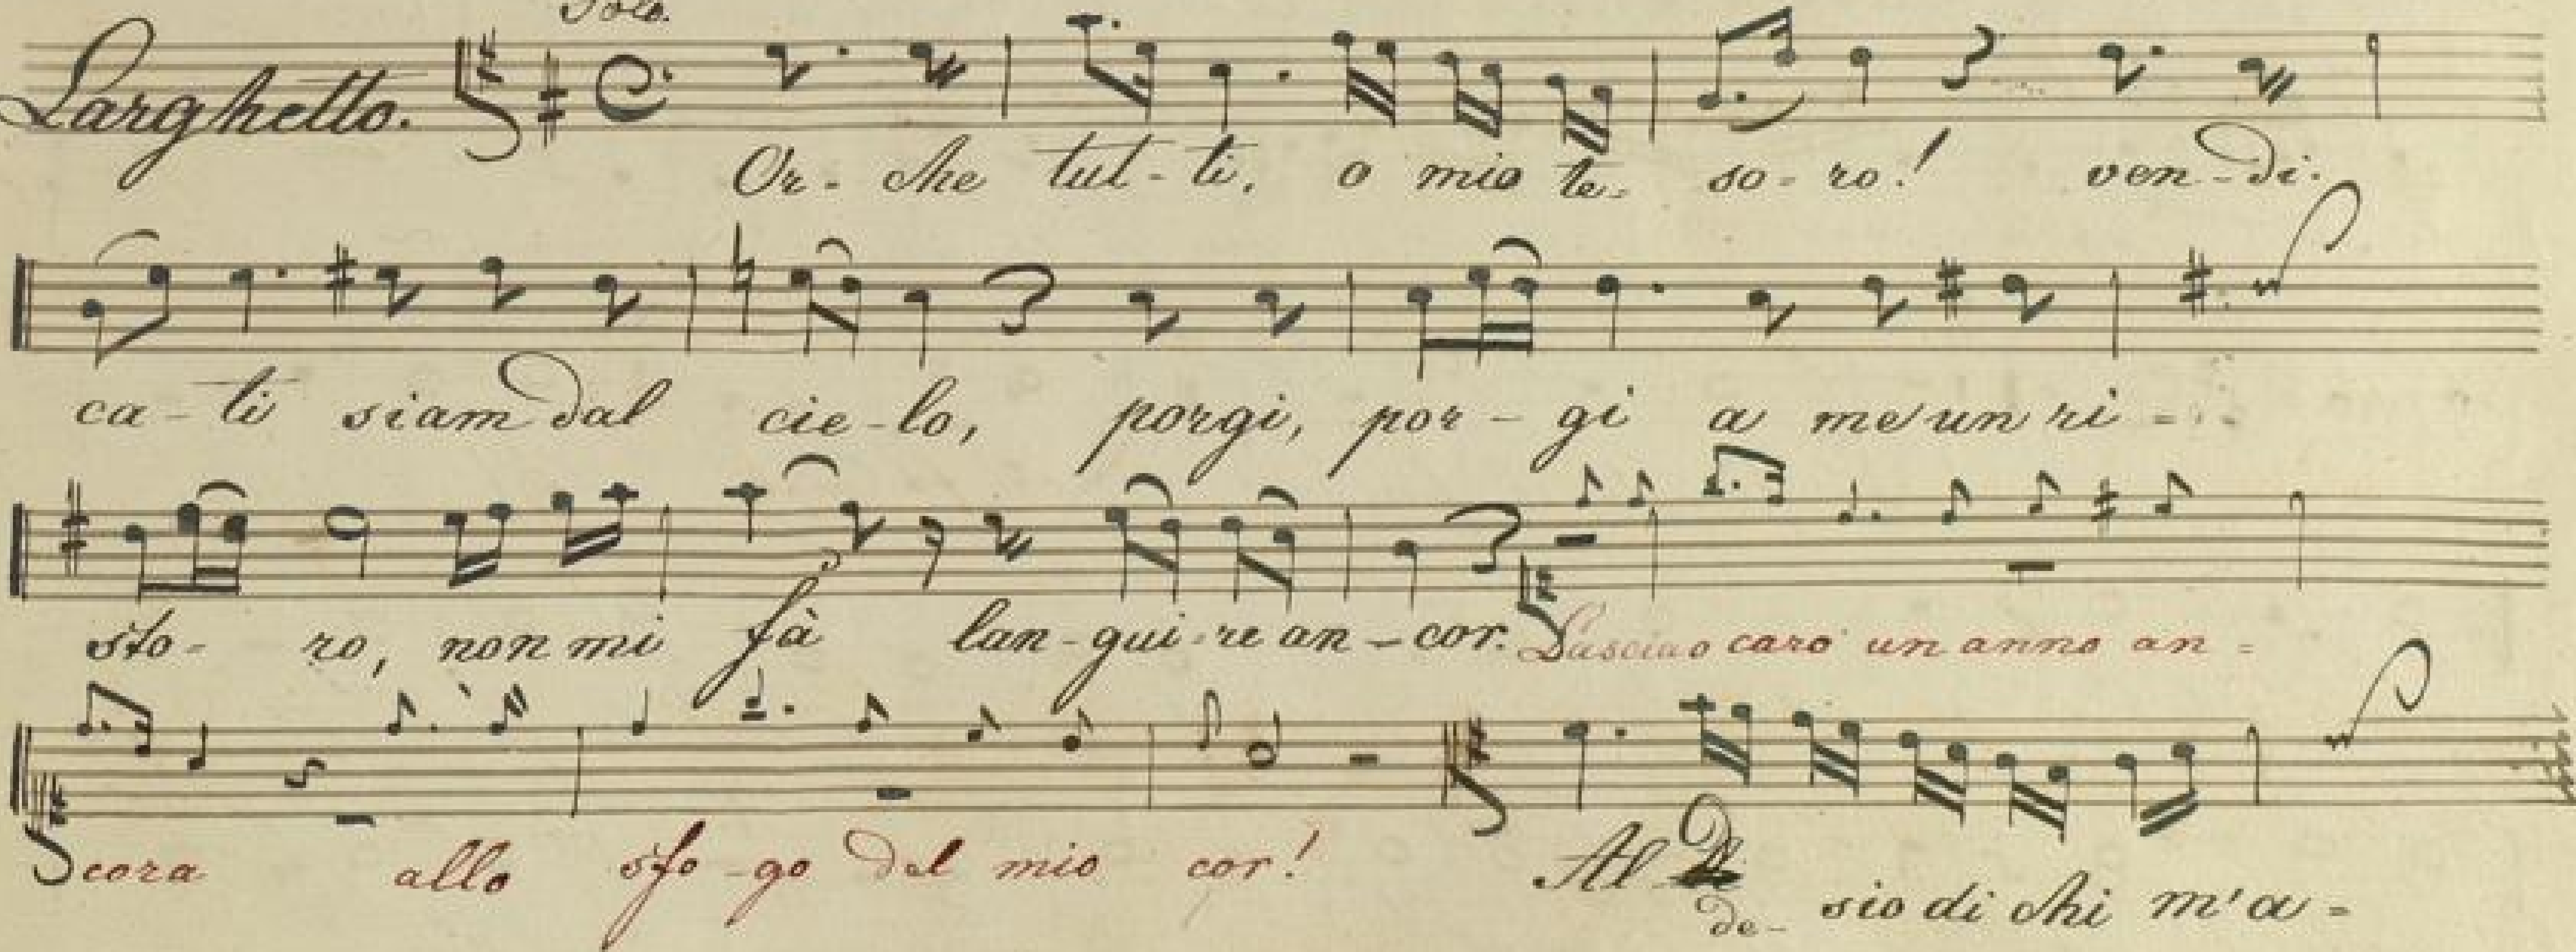 Solo.
Larghetto.
Or - che tut - ti, o mio te - so - ro! ven - di -
ca - ti siam dal cie - lo, porgi, por - gi a me un ri =
sto - ro, non mi fà lan - gui - re an - cor. Lascia o caro un anno an =
cora allo sfo - go del mio cor!
Al de - sio di chi m'a =